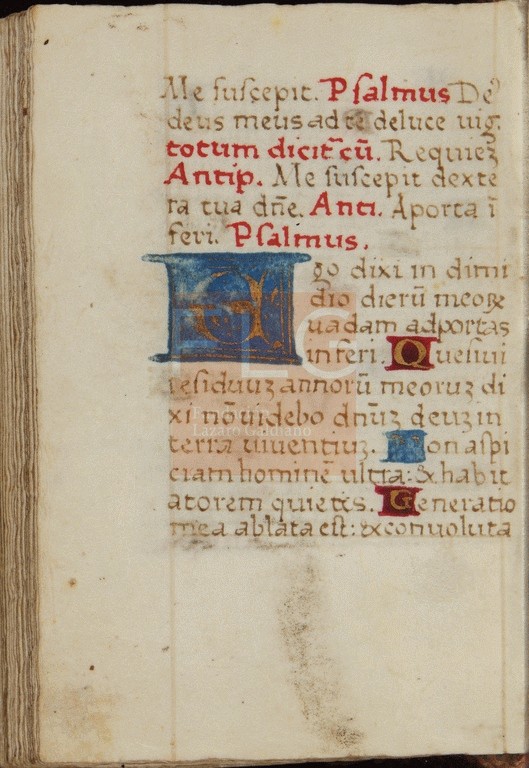 Me suscepit. Psalmus De9
deus meus ad te de luce uig.
totum dicit̃ cũ. Requieȝ
Antip. Me suscepit dexte
ra tua dñe. Anti. A porta ĩ
feri. Psalmus.
Ego dixi in dimi
dio dierũ meoꝝ
uadam ad portas
inferi. Quesiui
residuuȝ annorũ meoruȝ di
xi nõ uidebo dñuȝ deuȝ in
terra uiuentiuȝ. Non aspi
ciam hominẽ ultra: & habit
atorem quietis. Generatio
mea ablata est: & conuoluta
FLG
Lázaro Galdiano